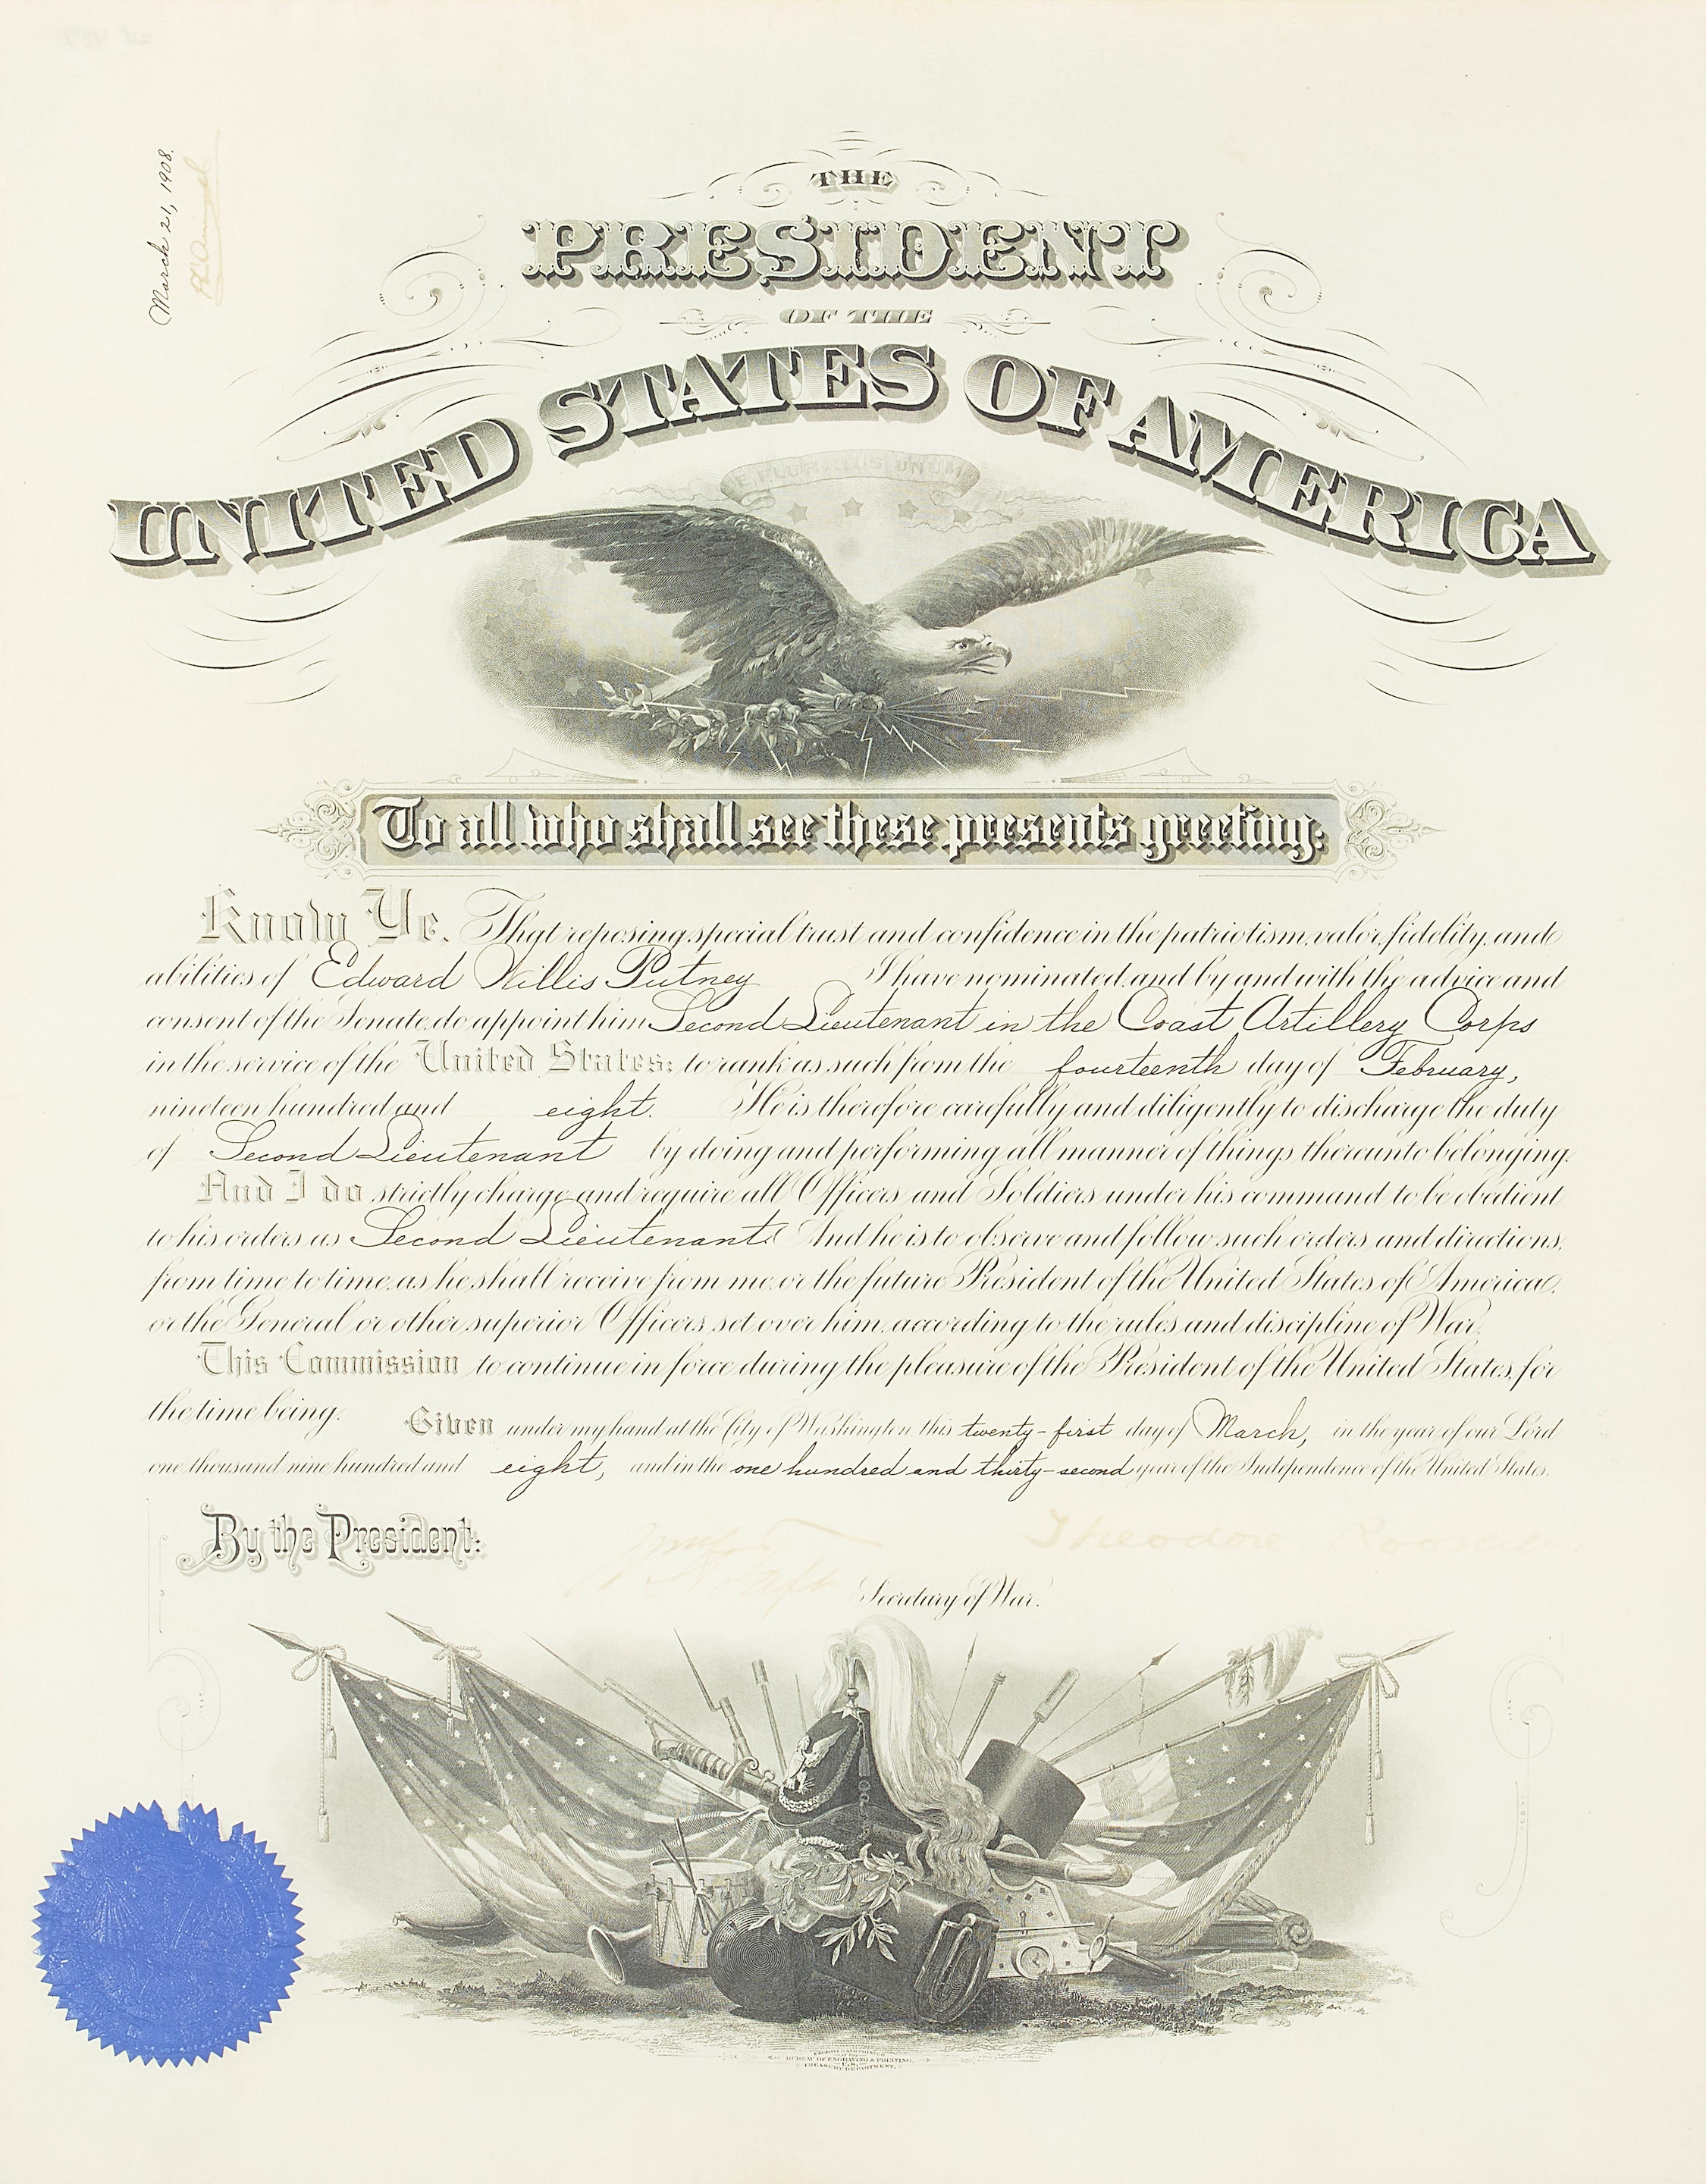 March 21, 1908.
THE
PRESIDENT
OF THE
UNITED STATES OF AMERICA
E PLURIBUS UNUM
To all who shall see these presents greeting:
Know Ye, That reposing special trust and confidence in the patriotism, valor, fidelity, and
abilities of Edward Willis Putney I have nominated, and by and with the advice and
consent of the Senate, do appoint him Second Lieutenant in the Coast Artillery Corps
in the service of the United States: to rank as such from the fourteenth day of February,
nineteen hundred and eight. He is therefore carefully and diligently to discharge the duty
of Second Lieutenant by doing and performing all manner of things thereunto belonging.
And I do strictly charge and require all Officers and Soldiers under his command to be obedient
to his orders as Second Lieutenant. And he is to observe and follow such orders and directions,
from time to time, as he shall receive from me, or the future President of the United States of America,
or the General or other superior Officers set over him, according to the rules and discipline of War.
This Commission to continue in force during the pleasure of the President of the United States, for
the time being. Given under my hand at the City of Washington, this twenty-first day of March, in the year of our Lord
one thousand nine hundred and eight, and in the one hundred and thirty-second year of the Independence of the United States.
By the President:
Theodore Roosevelt
Wm H Taft
Secretary of War.
BUREAU OF ENGRAVING & PRINTING,
U.S.
TREASURY DEPARTMENT.